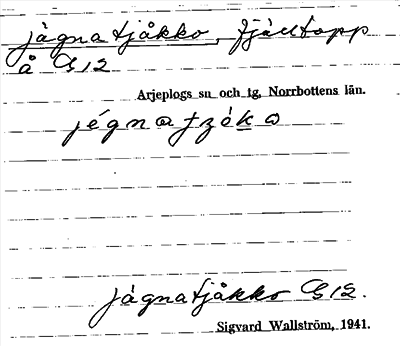 jågnatjåkko, fjälltopp
å G 12
Arjeplogs sn och tg, Norrbottens län.
jågnatjåkko G 12.
Sigvard Wallström, 1941.